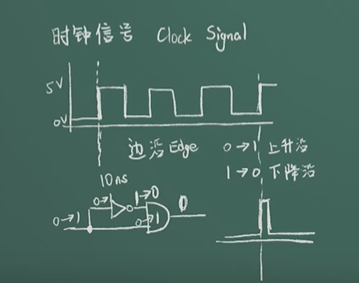 时钟信号 Clock Signal
5V
0V
边沿 Edge 0→1 上升沿
1→0 下降沿
10ns
0→ 1→0 0
0→1 0→1